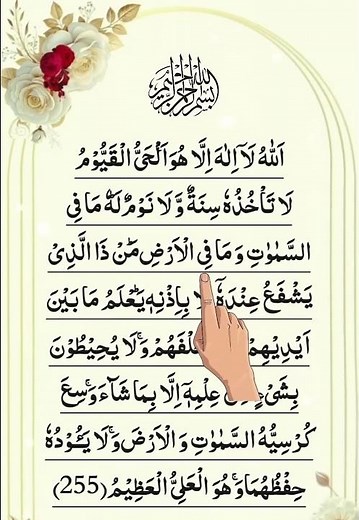 بسم الله الرحمن الرحيم
اَللّٰهُ لَاۤ اِلٰهَ اِلَّا هُوَ اَلْحَیُّ الْقَیُّوْمُ
لَا تَاْخُذُهٗ سِنَةٌ وَّ لَا نَوْمٌ لَهٗ مَا فِی
السَّمٰوٰتِ وَ مَا فِی الْاَرْضِ مَنْ ذَا الَّذِیْ
یَشْفَعُ عِنْدَهٗۤ بِاِذْنِهٖ یَعْلَمُ مَا بَیْنَ
اَیْدِیْهِمْ وَ لَا یُحِیْطُوْنَ
عِلْمِهٖۤ اِلَّا بِمَا شَآءَ وَسِعَ
كُرْسِیُّهُ السَّمٰوٰتِ وَ الْاَرْضَ وَ لَا یَـُٔوْدُهٗ
حِفْظُهُمَا وَ هُوَ الْعَلِیُّ الْعَظِیْمُ (255)